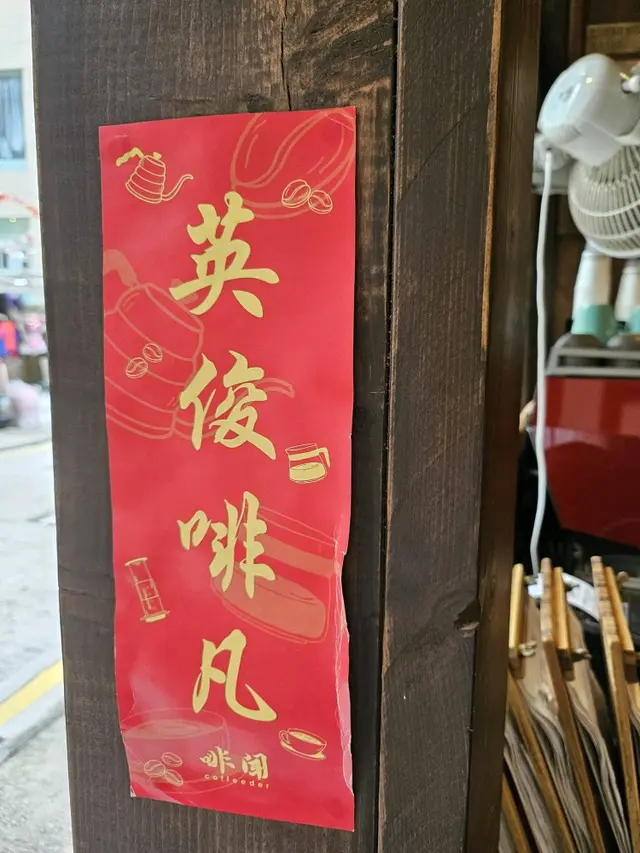 英俊啡凡
啡閒
coffeeder